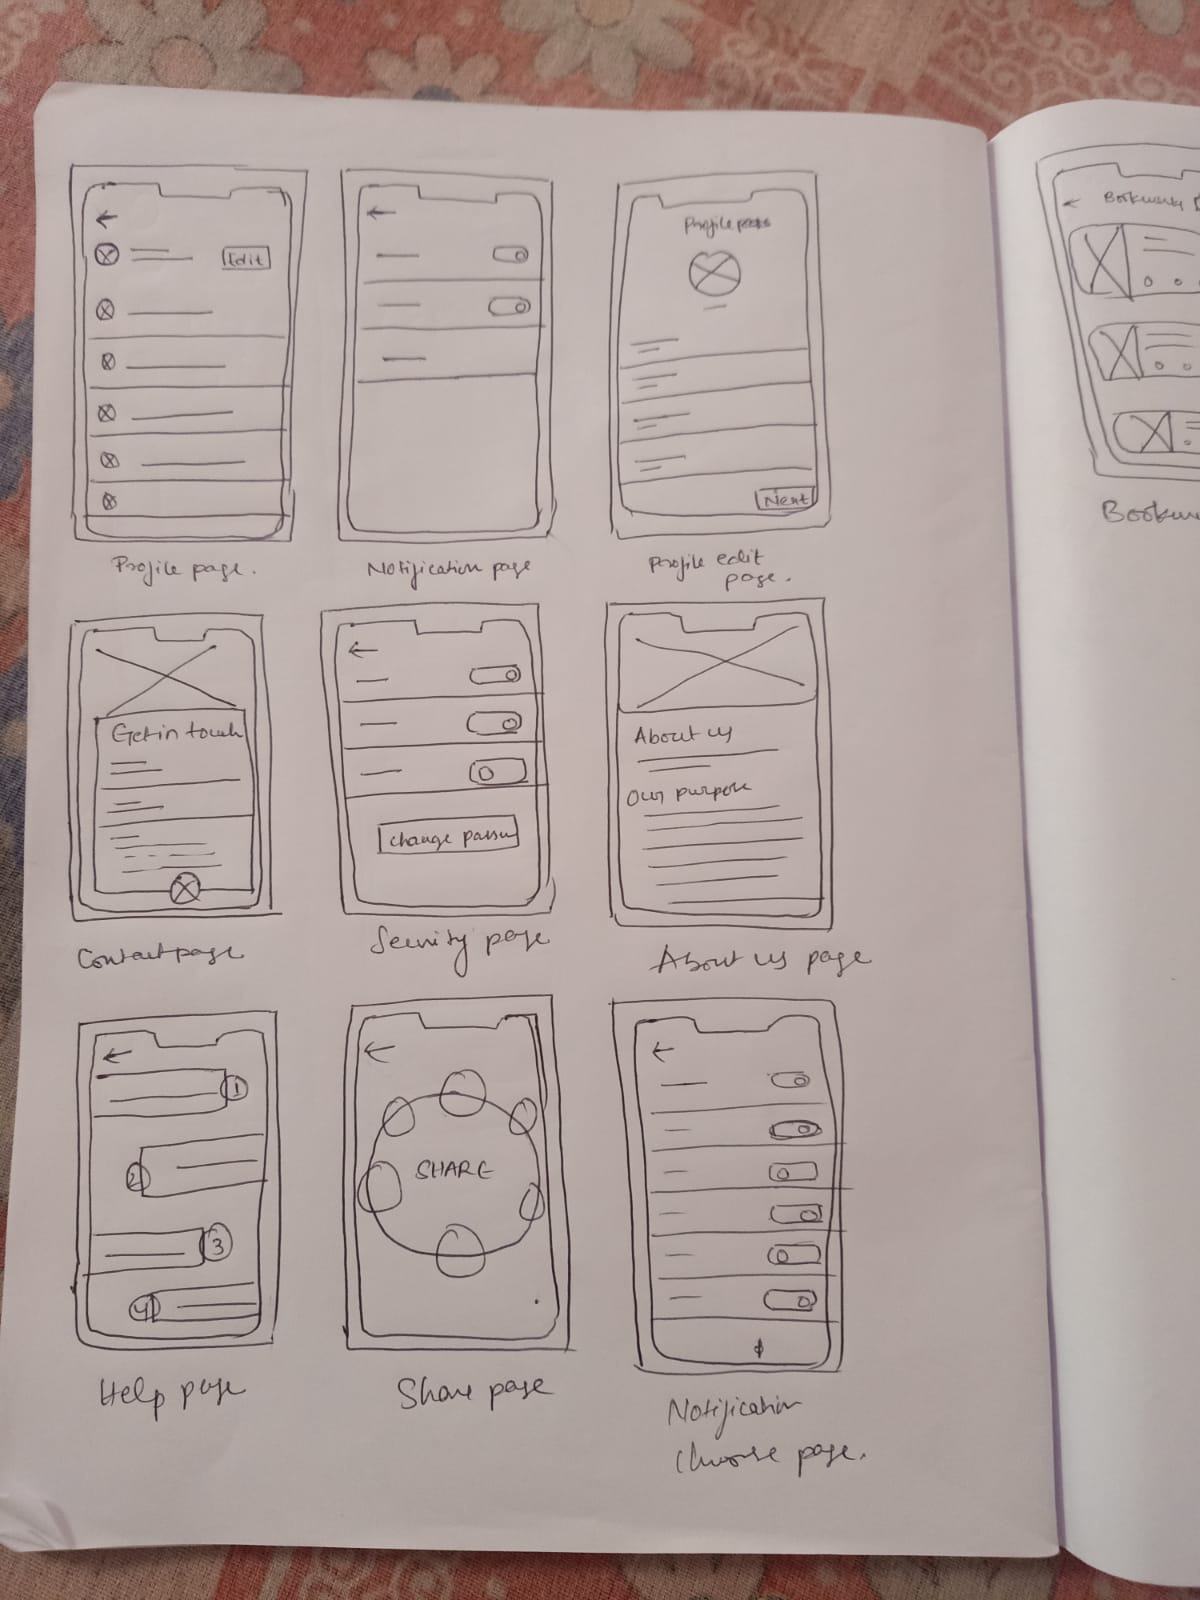 Edit
Profile page.
Notification page
Profile
Next
Profile edit
page.
Get in touch
Contact page
Change
Security page
About us
Our purpose
About us page
1
2
3
4
Help page
SHARE
Share page
Notification
Choose page.